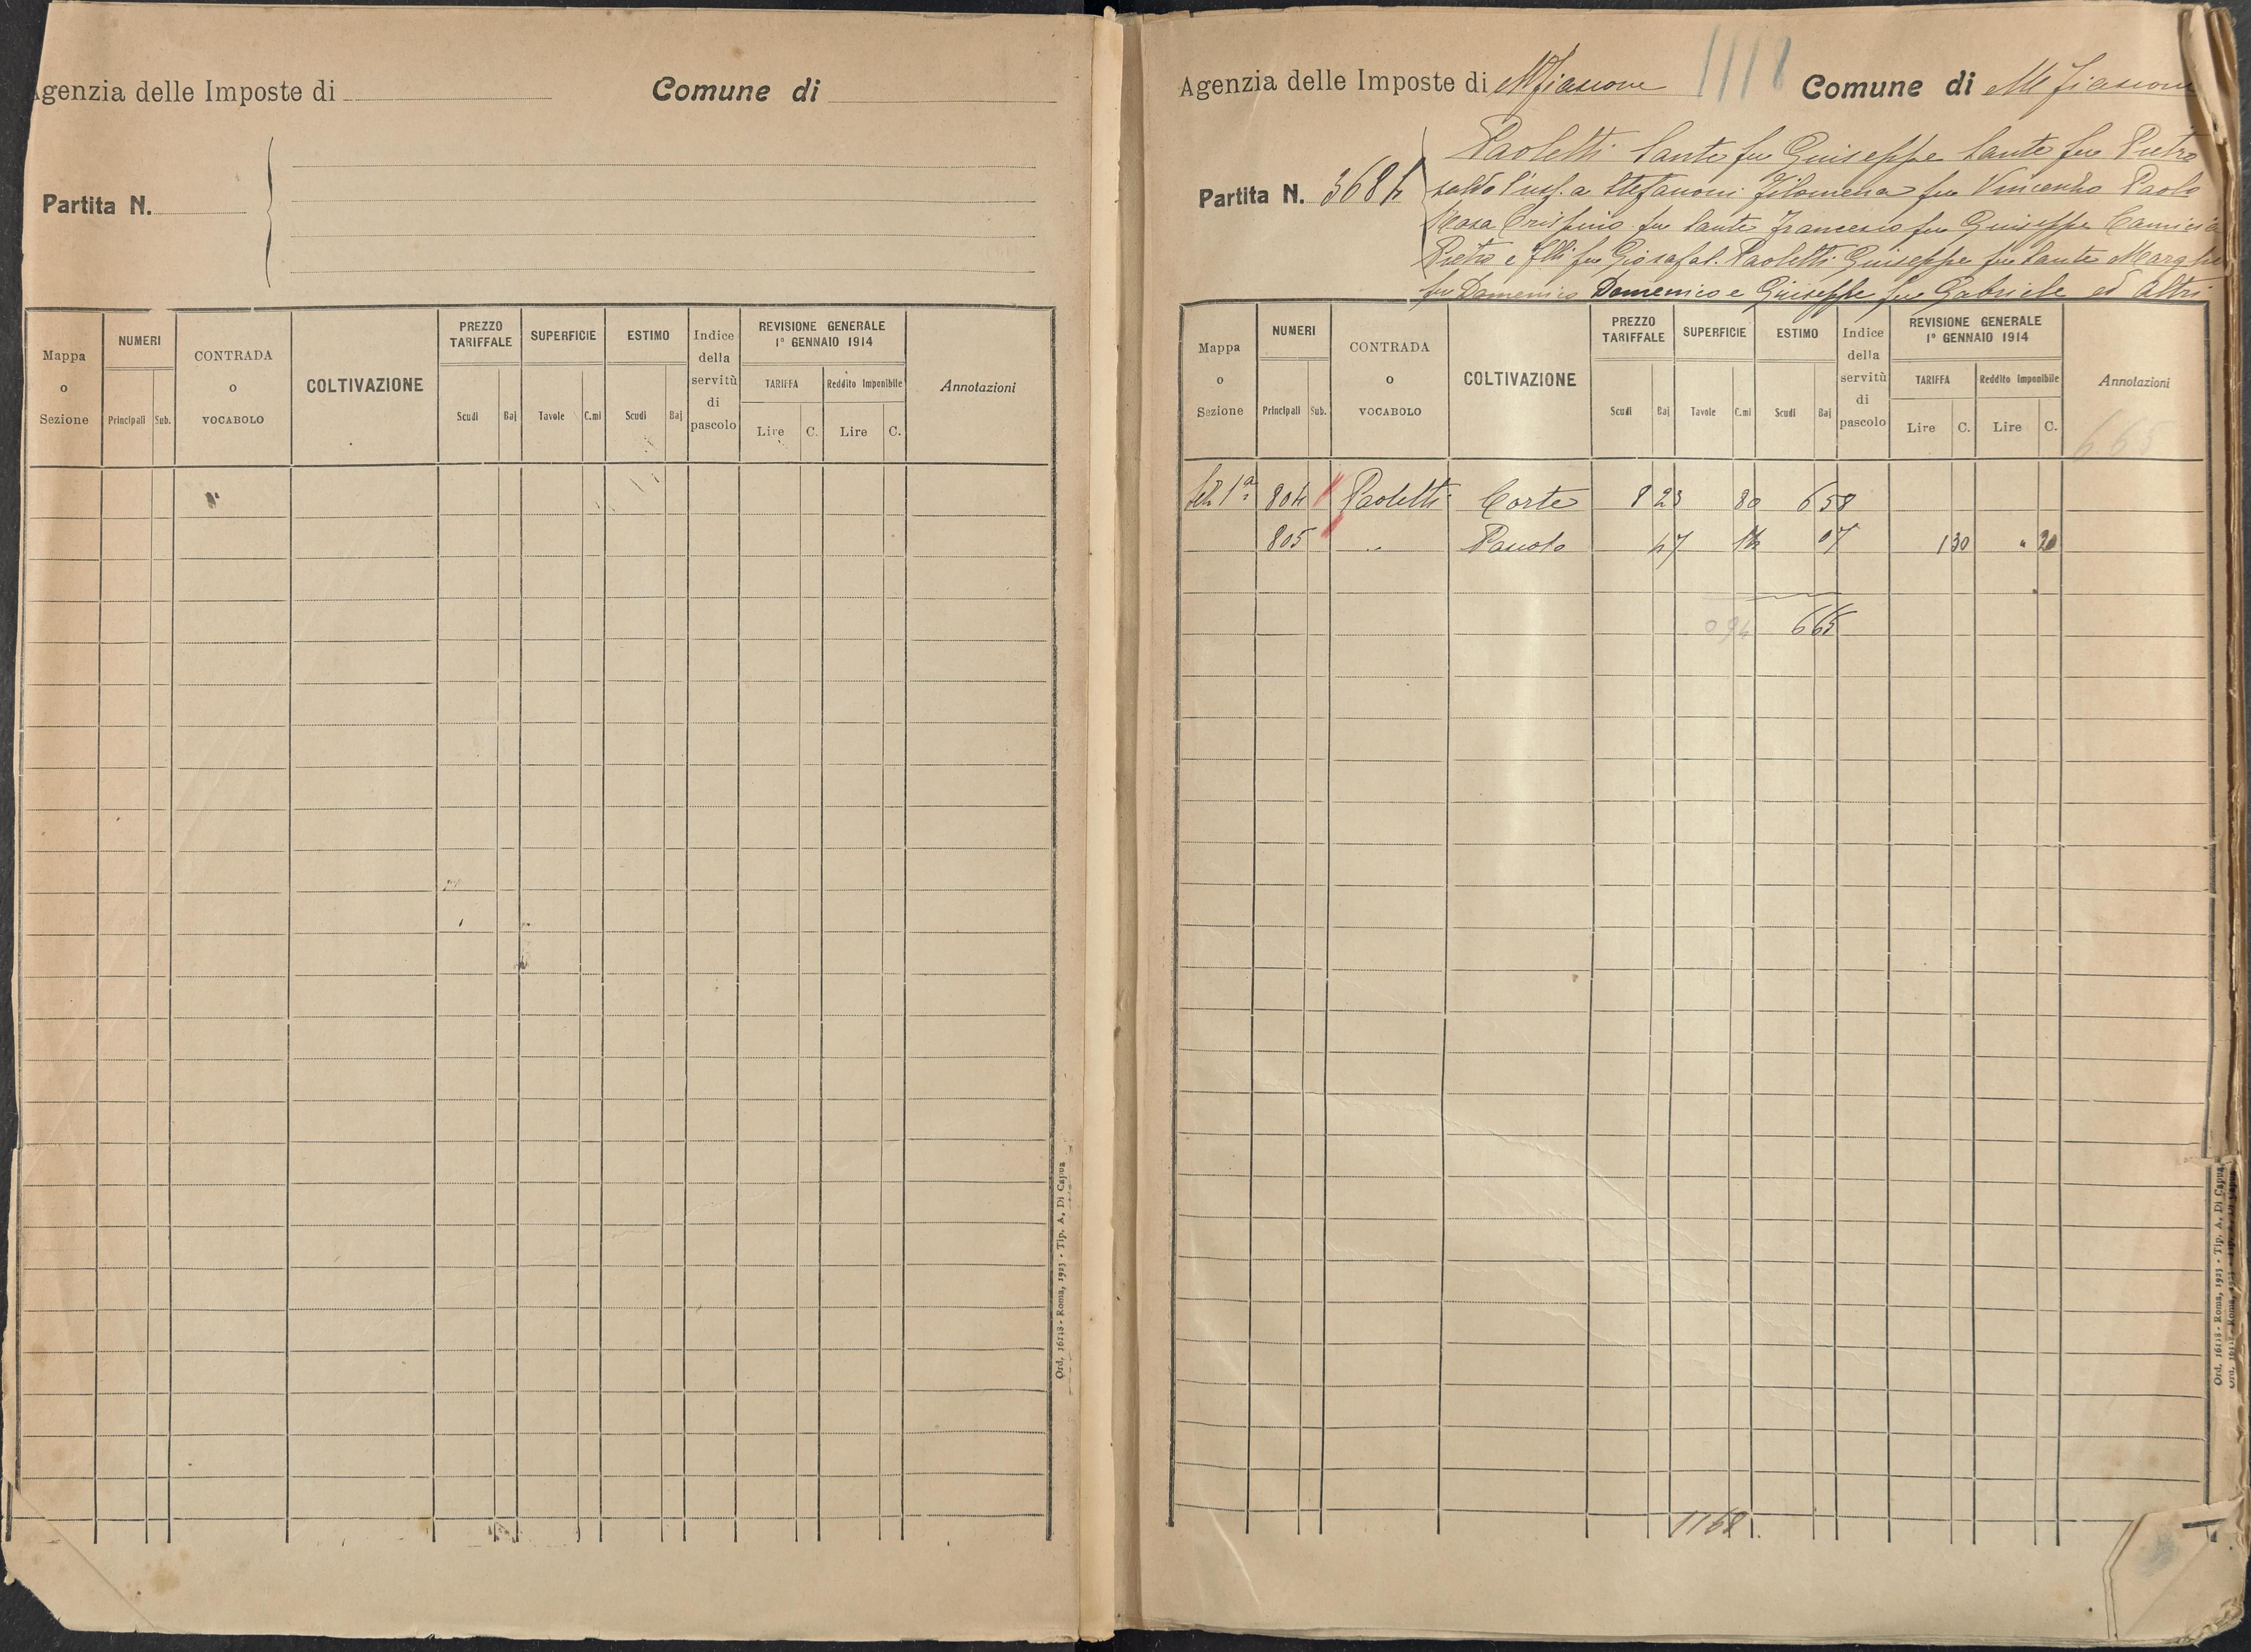 Agenzia delle Imposte di
Comune di
Partita N.
Mappa o Sezione
NUMERI
Principali
Sub.
CONTRADA o VOCABOLO
COLTIVAZIONE
PREZZO TARIFFALE
Scudi
Baj
SUPERFICIE
Tavole
C.mi
ESTIMO
Scudi
Baj
Indice della servitù di pascolo
REVISIONE GENERALE
1° GENNAIO 1914
TARIFFA
Reddito Imponibile
Lire
C.
Lire
C.
Annotazioni
Ord. 16118 - Roma, 1923 - Tip. A. Di Capua
Agenzia delle Imposte di Mfiascone
1118
Comune di M fiascone
Partita N. 3684
Paoletti Sante fu Giuseppe Sante fu Pietro
saldo l'usf. a Stefanoni Filomena fu Vincenzo Paolo
Crispino fu Sante Francesco fu Giuseppe
Pietro e flli fu Giosafat. Paoletti Giuseppe fu Sante
fu Domenico Domenico e Giuseppe fu Gabriele ed Altri
Mappa o Sezione
NUMERI
Principali
Sub.
CONTRADA o VOCABOLO
COLTIVAZIONE
PREZZO TARIFFALE
Scudi
Baj
SUPERFICIE
Tavole
C.mi
ESTIMO
Scudi
Baj
Indice della servitù di pascolo
REVISIONE GENERALE
1° GENNAIO 1914
TARIFFA
Reddito Imponibile
Lire
C.
Lire
C.
Annotazioni
665
Sez 1ª 804 Paoletti Corte 8 23 80 6 58
805 " Pascolo 47 14 07 1 30 " 20
094 6 65
1168
Ord. 16118 - Roma, 1923 - Tip. A. Di Capua